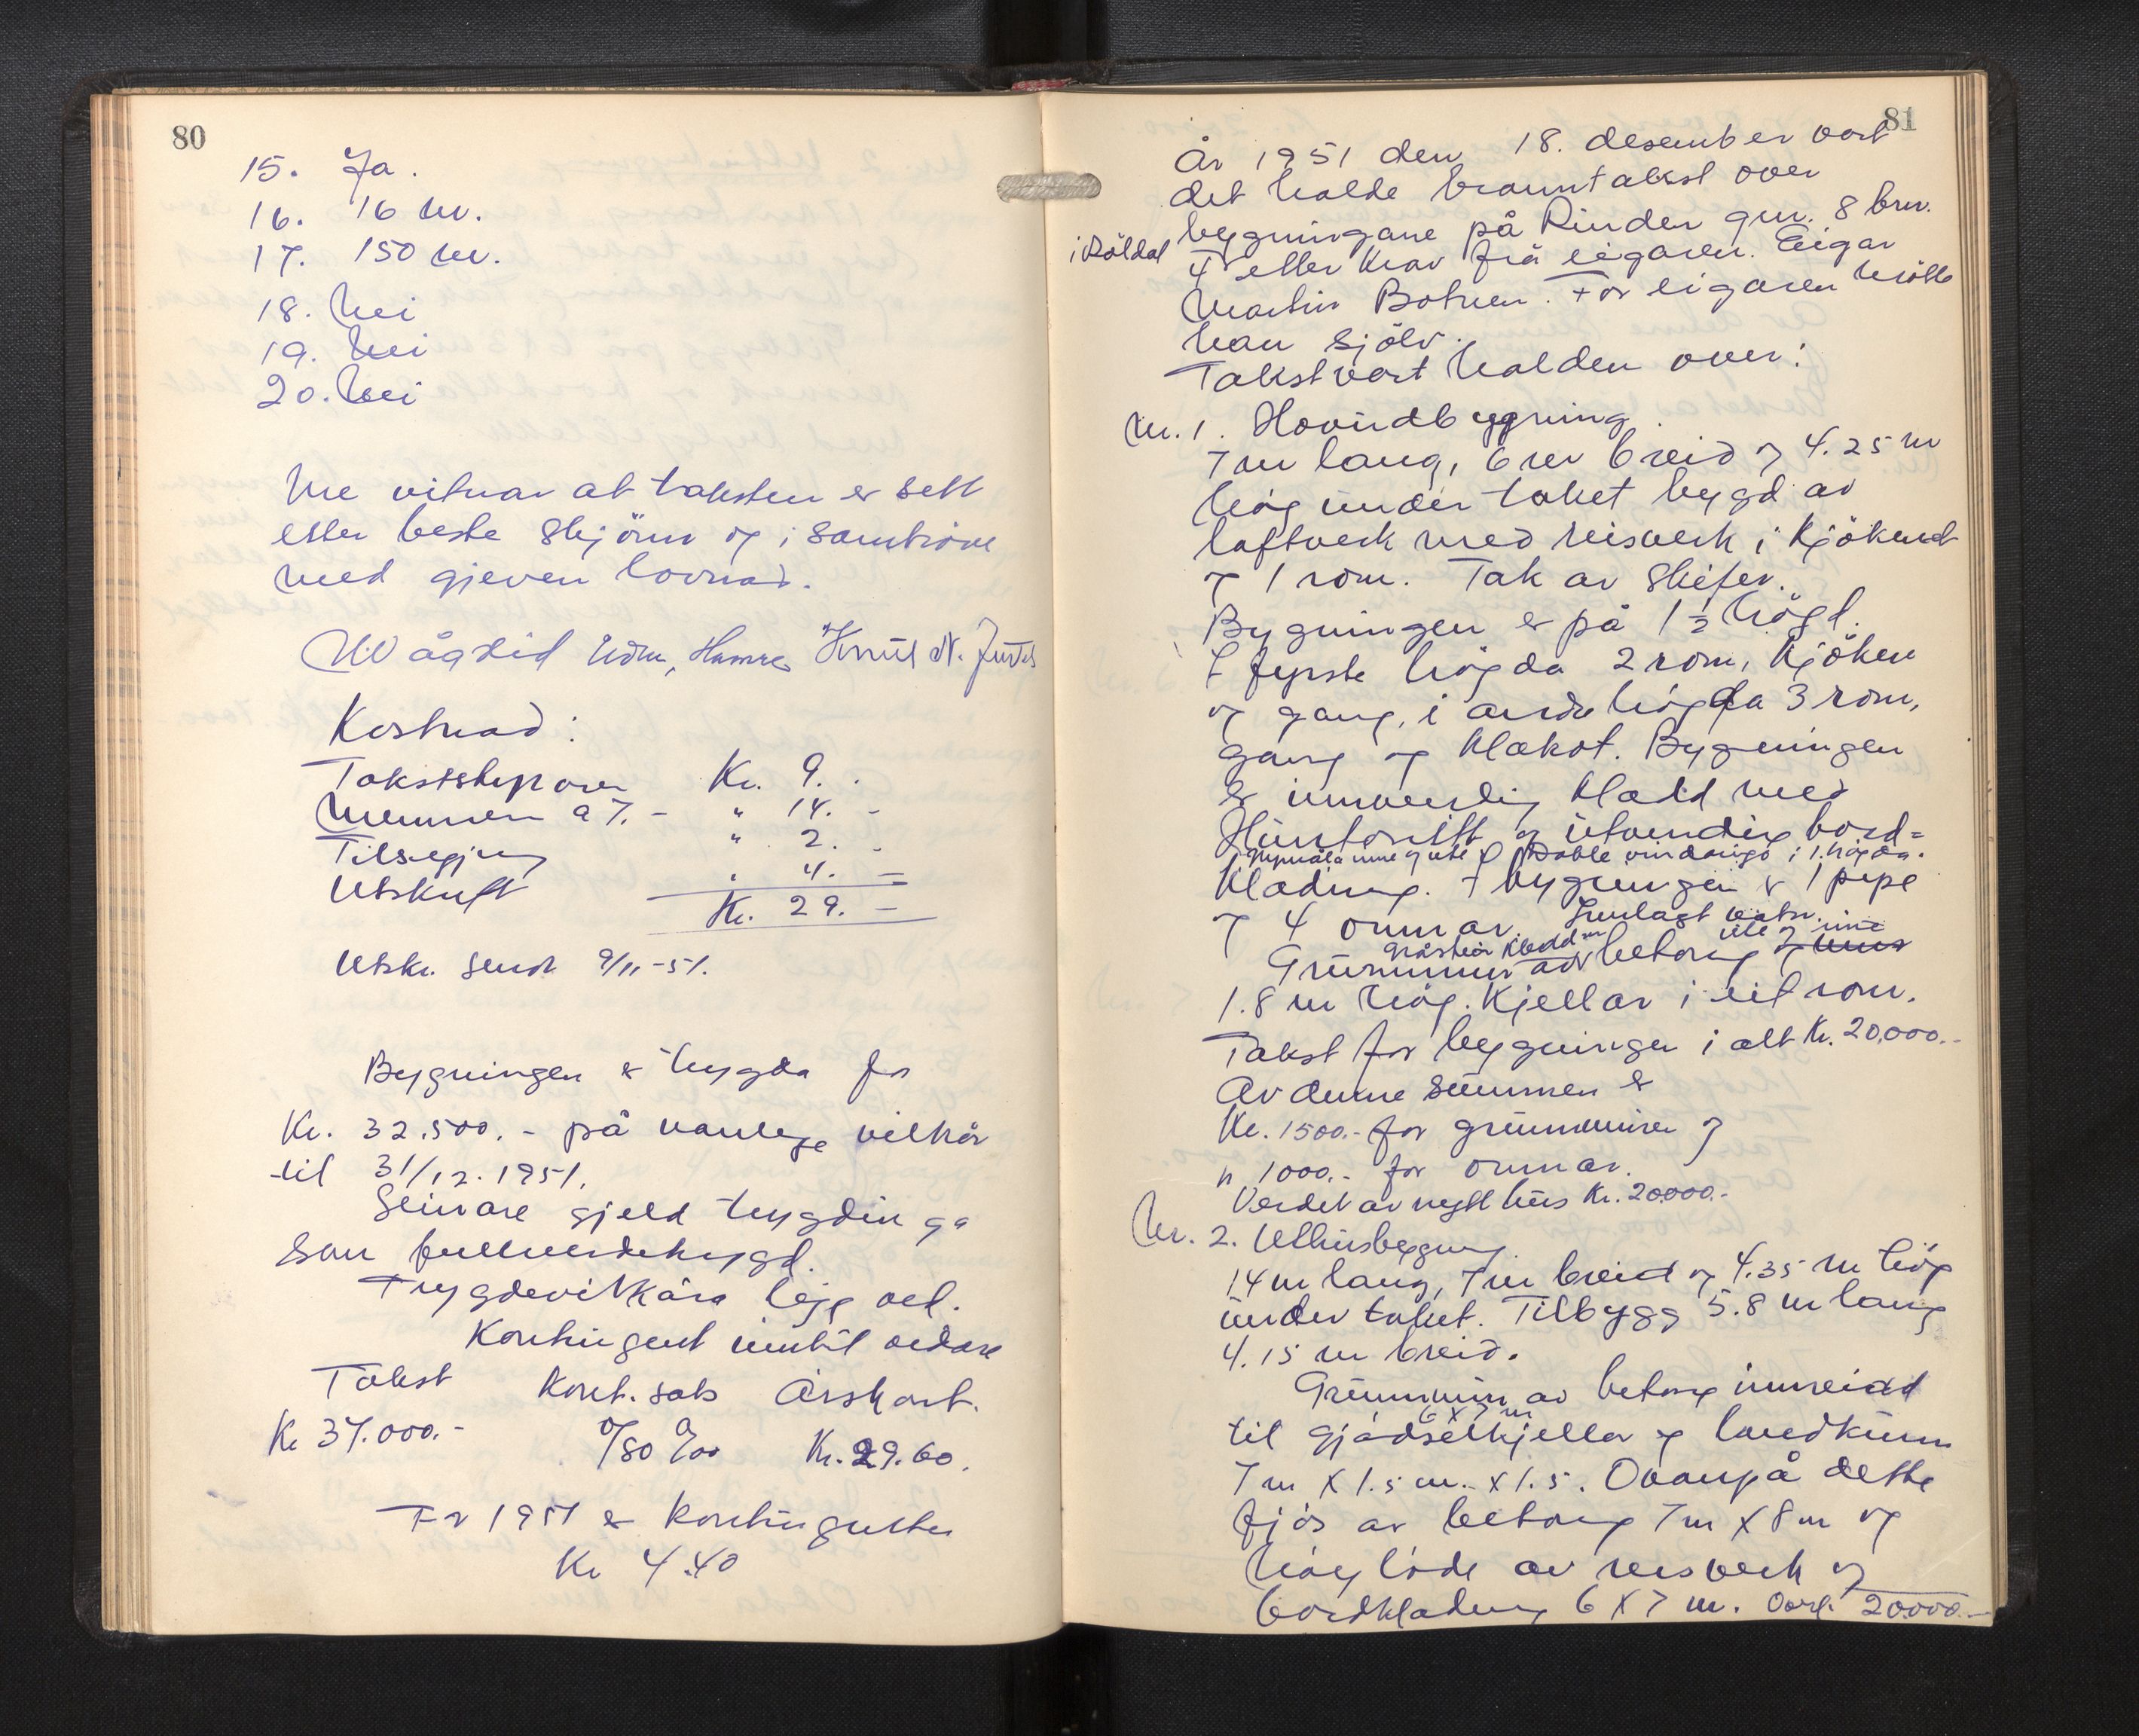 80
15. Ja.
16. 16 m.
17. 150 m.
18. Nei
19. Nei
20. Nei
Me vitnar at taksten er sett
etter beste skjönn og i samhöve
med gjeven lovnad.
W Ågstid Edm. Hamre Knut N.
Kostnad:
Takststyraren Kr. 9. -
Mennene a 7. - " 14. -
Tilsegjing " 2. -
Utskrift " 4. -
Kr. 29. -
Utskr. sendt 9/11-51.
Bygningen er trygda for
Kr. 32.500.- på vanlege vilkår
til 31/12.1951.
Seinare gjeld trygdinga
som fullverdetrygd.
Trygdevilkåra legg ved.
Kontingent inntil vidare
Takst Kont.sats Årskont.
Kr 37.000.- 0/80 0/00 Kr. 29.60.
For 1951 er kontingenten
Kr 4.40
81
År 1951 den 18. desember vart
det halde branntakst over
bygningane på Rinden gnr. 8 bnr.
i Röldal
4 etter krav frå eigaren. Eigar
Martin Botnen. For eigaren mötte
han sjölv.
Takst vart halden over:
Nr. 1. Hovudbygning.
7 m lang, 6 m breid og 4.25 m
høg under taket bygd av
laftverk med reisverk i kjökenet
og 1 rom. Tak av skifer.
Bygningen er på 1 1/2 högd.
I fyrste högda 2 rom, kjöken
og gang, i andre högda 3 rom,
gang og klekot. Bygningen
er innvendig kledd med
Huntonitt og utvendig bord=
måla inne og ute Doble vindaugo i 1. högda.
kledning. I bygningen er 1 pipe
og 4 omnar. Innlagt vatn.
gråstein kledd m ute og inne
Grunnmur av betong og inne
1.8 m høg. Kjellar i eit rom.
Takst for bygningen i alt Kr. 20,000.-
Av denne summen er
Kr. 1500.- for grunnmuren og
" 1000.- for omnar.
Verdet av nytt hus Kr. 20000.-
Nr. 2. Uthusbygning.
14 m lang, 7 m breid og 4.35 m høg
under taket. Tilbygg 5.8 m lang
4.15 m breid.
Grunnmur av betong innreidd
6 x 7 m
til gjödselkjellar og landkum
7 m x 1.5 m. x 1.5. Ovanpå dette
fjös av betong 7 m x 8 m og
höylöde av reisverk og
bordkledning 6 x 7 m. Overf. 20000.-